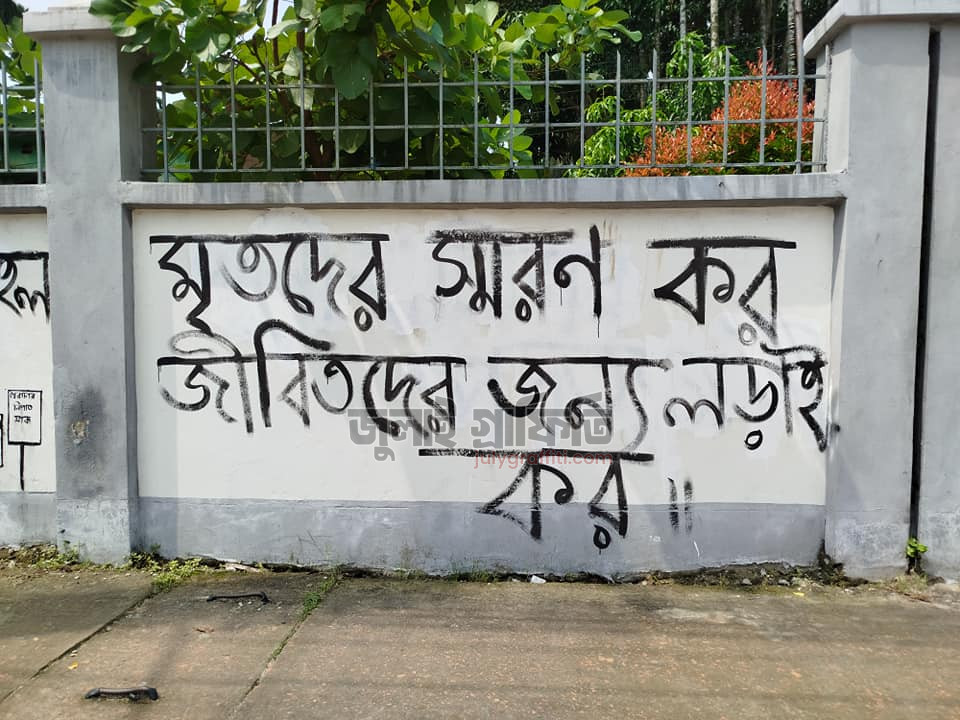 মৃতদের স্মরণ কর
জীবিতদের জন্য লড়াই
কর ॥
জুলাই গ্রাফিতি
julygraffiti.com